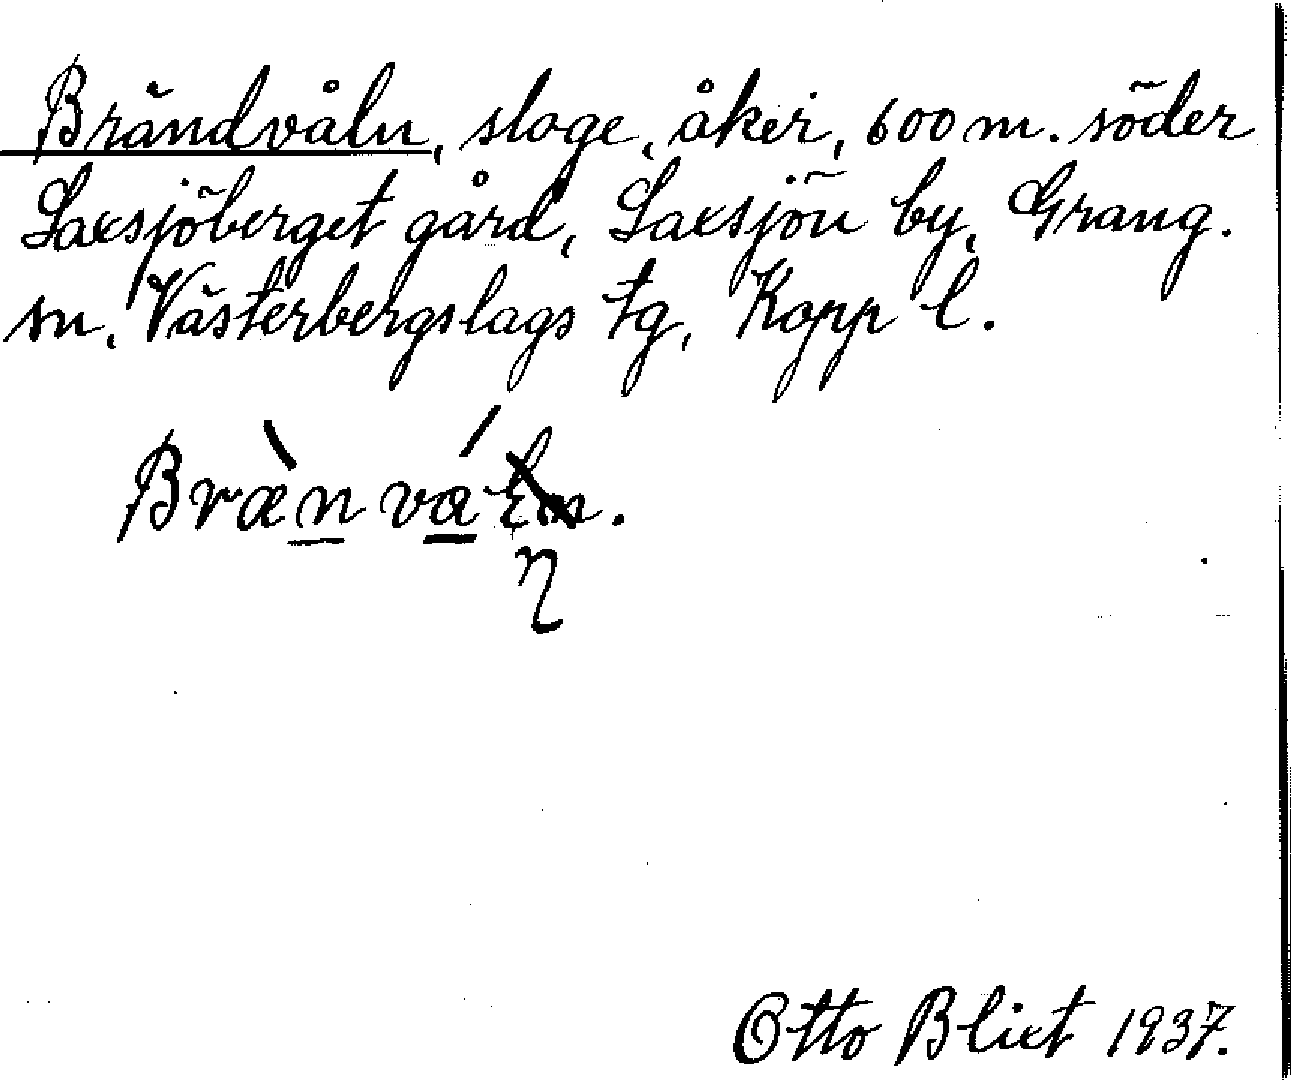 Brändvåln, sloge, åker, 600 m. söder
Saxsjöberget gård, Saxsjön by, Grang.
sn, Västerbergslags tg, Kopp l.
Bræ̀n vá
η
Otto Blixt 1937.